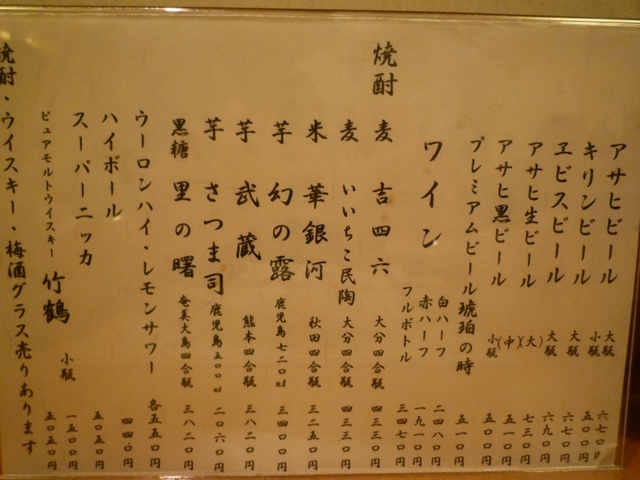 アサヒビール 大瓶 六七〇円
小瓶 五〇〇円
キリンビール 大瓶 六七〇円
ヱビスビール 大瓶 六九〇円
アサヒ生ビール (大) 七三〇円
(中) 五一〇円
アサヒ黒ビール 小瓶 五〇〇円
プレミアムビール 琥珀の時 五一〇円
ワイン 白ハーフ 二四八〇円
赤ハーフ 一九一〇円
フルボトル 三四七〇円
焼酎 麦 吉四六 大分四合瓶 四三三〇円
麦 いいちこ民陶 大分四合瓶 四三三〇円
米 華銀河 秋田四合瓶 三二五〇円
芋 幻の露 鹿児島七二〇㎖ 三四〇〇円
芋 武蔵 熊本四合瓶 三八二〇円
芋 さつま司 鹿児島五〇〇㎖ 二〇六〇円
黒糖 里の曙 奄美大島四合瓶 三八二〇円
ウーロンハイ・レモンサワー 各五五〇円
ハイボール 四四〇円
スーパーニッカ 五〇五〇円
小瓶 一五〇〇円
ピュアモルトウイスキー 竹鶴 五〇五〇円
焼酎・ウイスキー・梅酒グラス売りあります